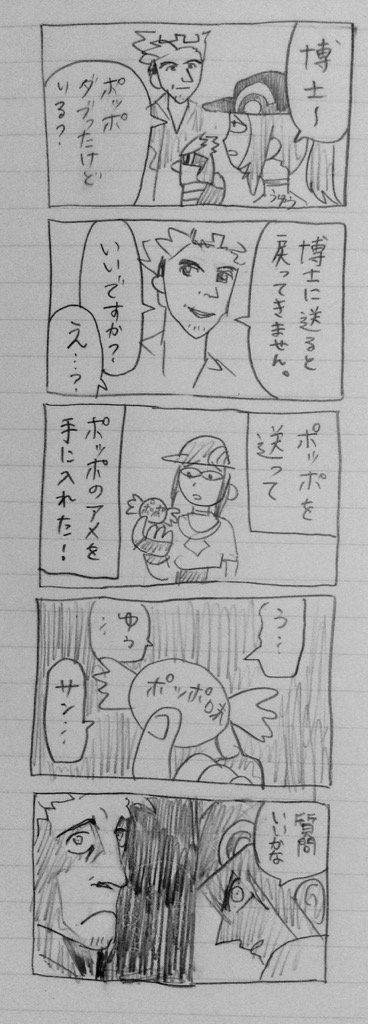 博士〜
ポッポ
ダブったけど
いる?
博士に送ると
戻ってきません。
いいですか?
え…?
ポッポを
送って
ポッポのアメを
手に入れた!
う…
ポッポ味
ゆぅ…
サン…
質問
いいかな